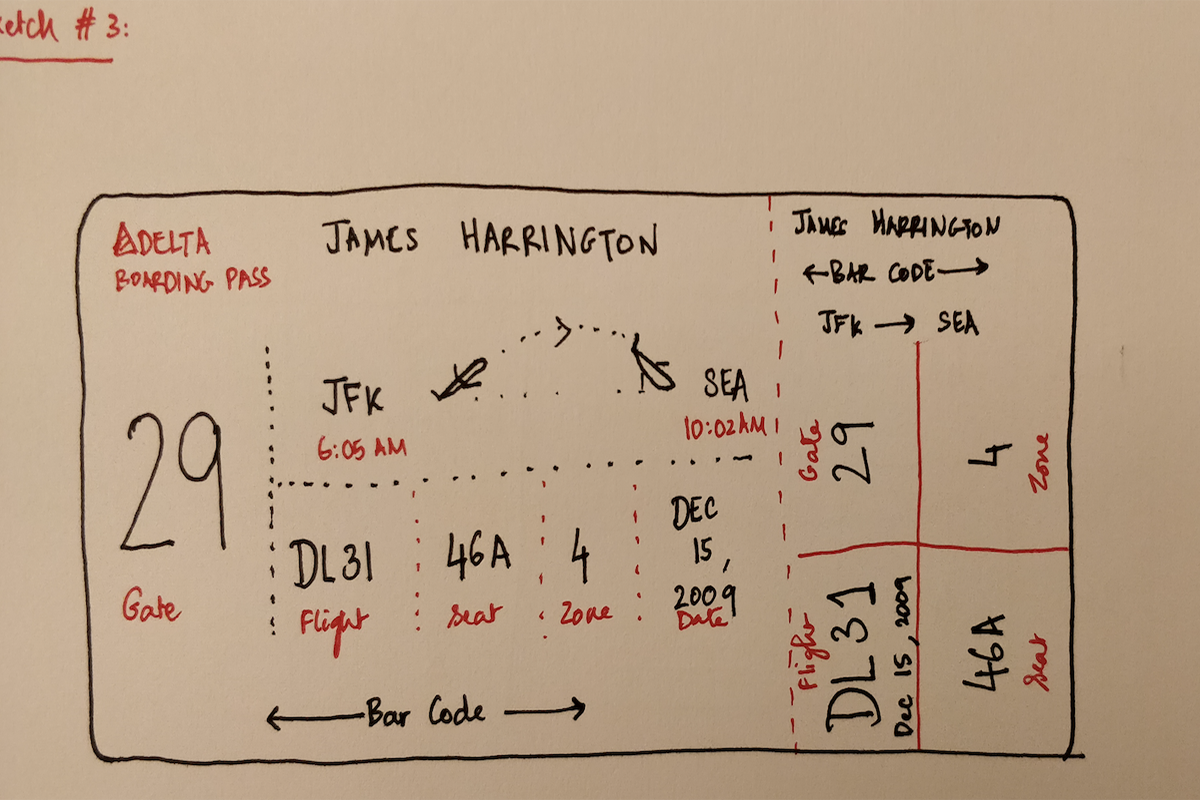 ketch #3:
DELTA
BOARDING PASS
JAMES HARRINGTON
JFK
6:05 AM
SEA
10:02AM
29
Gate
DL31
Flight
46A
Seat
4
Zone
DEC
15,
2009
Date
Bar Code
JAMES HARRINGTON
BAR CODE
JFK → SEA
Gate
29
4
Zone
Flight
DL31
Dec 15, 2009
46A
Seat